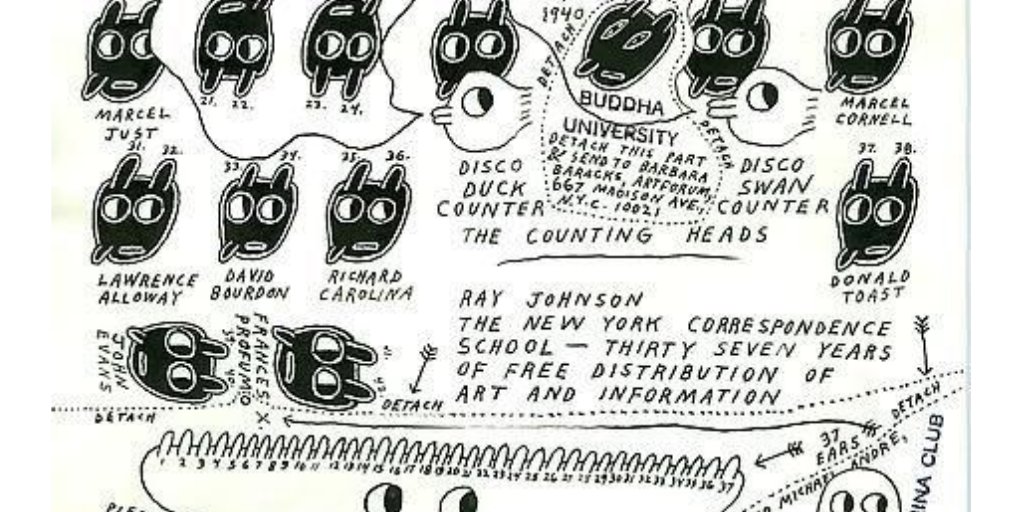 1940
DETACH
21. 22.
23. 24.
BUDDHA
UNIVERSITY
DETACH THIS PART
& SEND TO BARBARA
BARACKS, ARTFORUM,
667 MADISON AVE.,
N.Y.C. 10021
DETACH
MARCEL
JUST
MARCEL
CORNELL
DISCO
DUCK
COUNTER
DISCO
SWAN
COUNTER
THE COUNTING HEADS
31. 32.
33. 34.
35. 36.
37. 38.
LAWRENCE
ALLOWAY
DAVID
BOURDON
RICHARD
CAROLINA
DONALD
TOAST
RAY JOHNSON
THE NEW YORK CORRESPONDENCE
SCHOOL — THIRTY SEVEN YEARS
OF FREE DISTRIBUTION OF
ART AND INFORMATION
JOHN
EVANS
FRANCES X
PROFUMO
DETACH
DETACH
DETACH
37
EARS
1 2 3 4 5 6 7 8 9 10 11 12 13 14 15 16 17 18 19 20 21 22 23 24 25 26 27 28 29 30 31 32 33 34 35 36 37
MICHAEL ANDRE,
INA CLUB